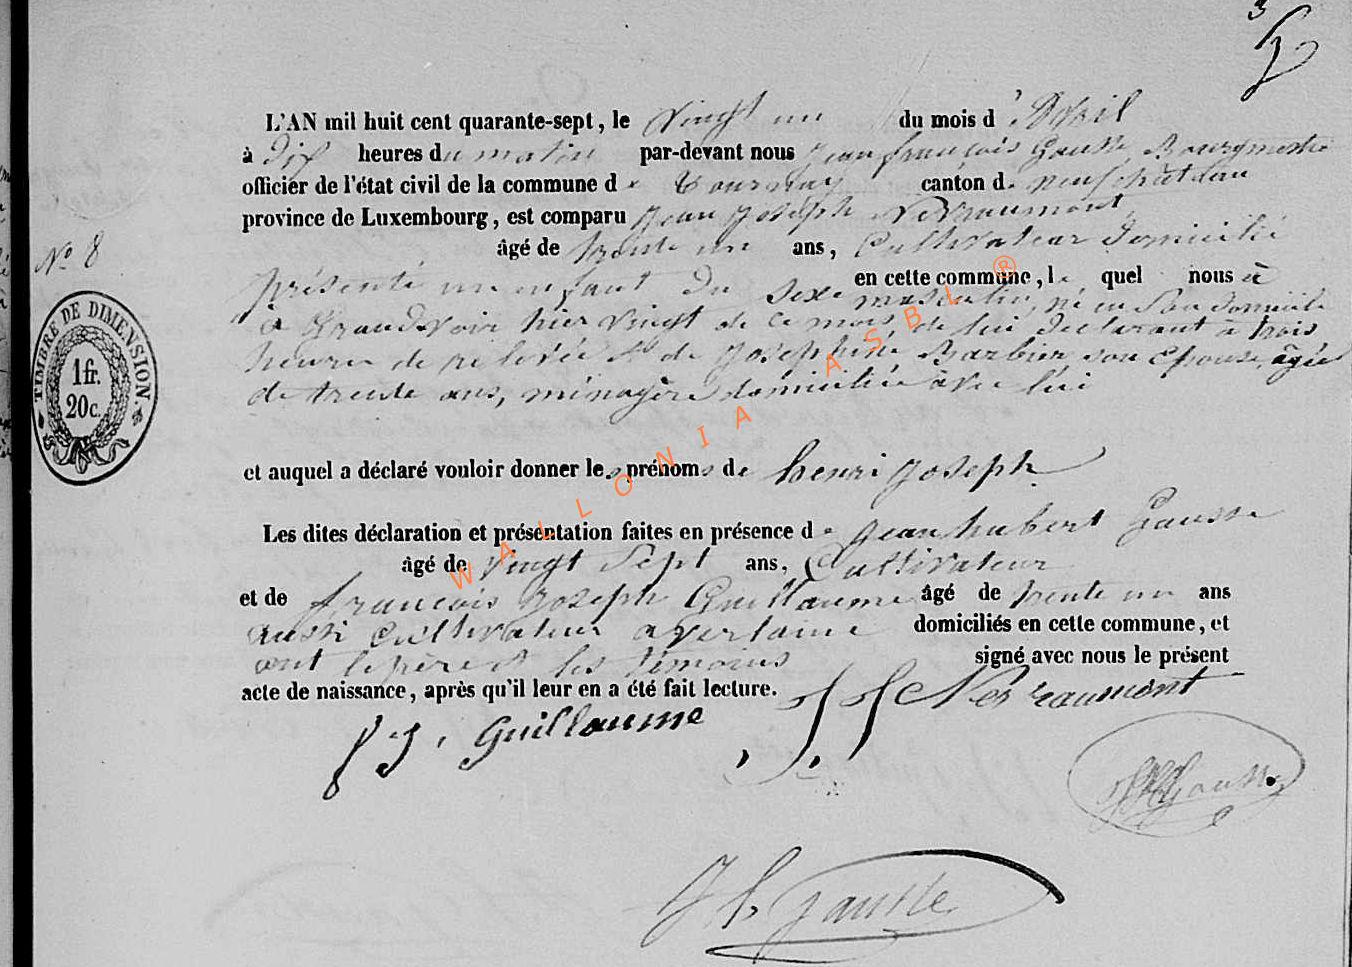 3
L'AN mil huit cent quarante-sept, le Vingt un du mois d' Avril
à Dix heures du matin par-devant nous jean françois Gausse Bourgmestre
officier de l'état civil de la commune de Tournay canton de neufchâteau
province de Luxembourg, est comparu jean joseph Nepraumont
N° 8 âgé de trente un ans, Cultivateur domicilié
en cette commune, lequel nous à
présenté un enfant du sexe masculin, né en son domicile
à Grandvoir hier vingt de ce mois, de lui déclarant à trois
heures de relevée et de joséphine Barbier son epouse, âgée
de trente ans, ménagère domiciliée avec lui
TIMBRE DE DIMENSION
1 fr.
20 c.
et auquel a déclaré vouloir donner les prénoms de henri joseph
Les dites déclaration et présentation faites en présence de jean hubert Gausse
âgé de vingt sept ans, Cultivateur
et de françois joseph Guillaume âgé de trente un ans
aussi cultivateur a verlaine domiciliés en cette commune, et
ont le père et les témoins signé avec nous le présent
acte de naissance, après qu'il leur en a été fait lecture.
f j. Guillaume
jj Nepraumont
Gausse
jh. Gausse
WALLONIA ASBL ®